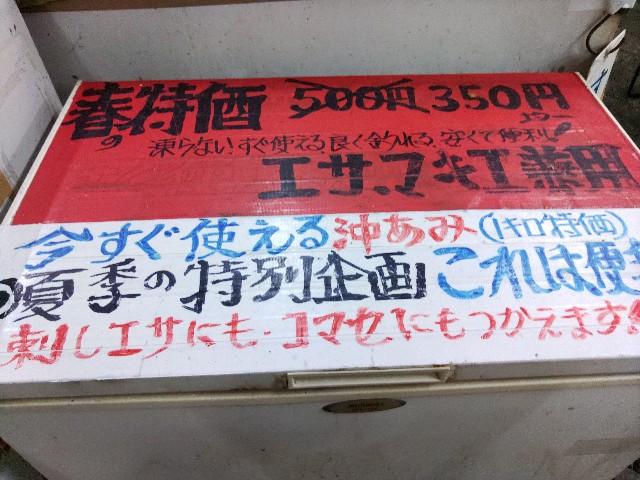 春の特価 500円 350円より
凍らないすぐ使える、良く釣れる、安くて便利!
エサ、マキエ兼用
今すぐ使える沖あみ(1キロ特価)
の夏季の特別企画 これは便
刺しエサにも・コマセにもつかえます